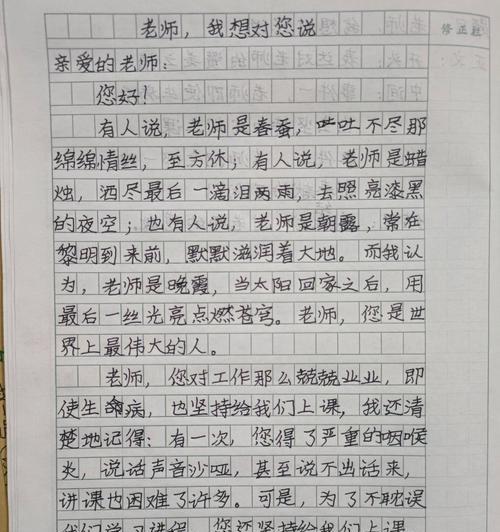 老师，我想对您说
修正栏
亲爱的老师：
您好！
有人说，老师是春蚕，吐吐不尽那
绵绵情丝，至方休；有人说，老师是蜡
烛，洒尽最后一滴泪两雨，去照亮漆黑
的夜空；也有人说，老师是朝露，常在
黎明到来前，默默滋润着大地。而我认
为，老师是晚霞，当太阳回家之后，用
最后一丝光亮点燃苍穹。老师，您是世
界上最伟大的人。
老师，您对工作那么兢兢业业，即
使生病，也坚持给我们上课，我还清
楚地记得：有一次，您得了严重的咽喉
炎，说话声音沙哑，甚至说不出话来，
讲课也困难了许多。可是，为了不耽误
我们学习进程，您还坚持给我们上课